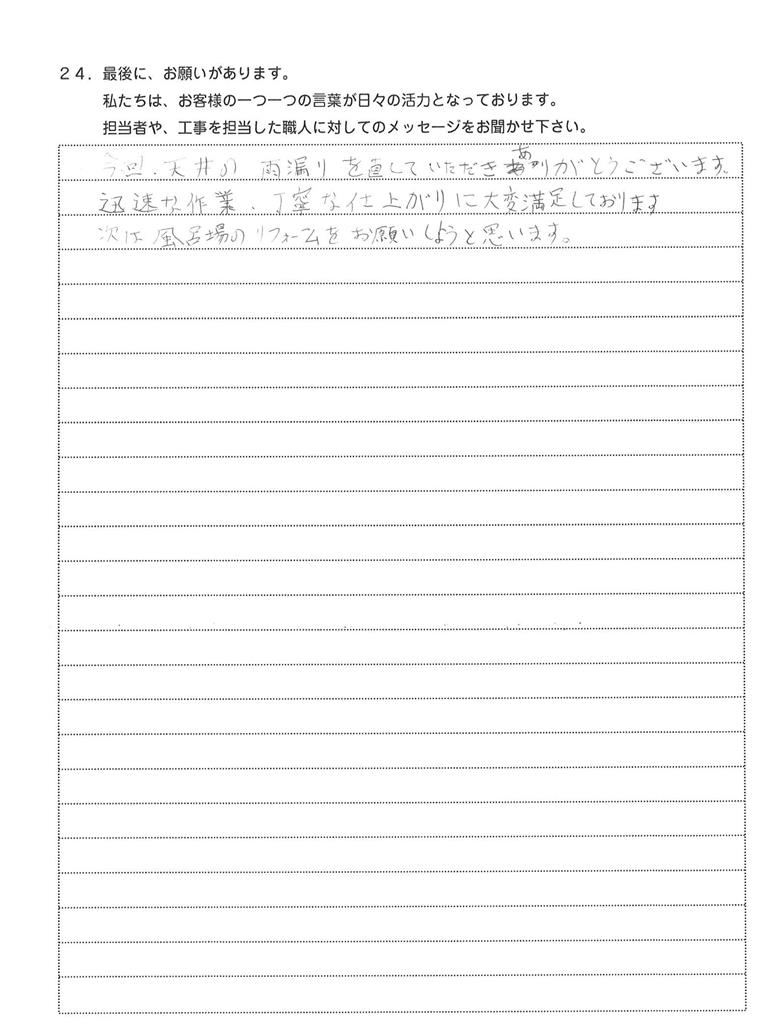 ２４．最後に、お願いがあります。
私たちは、お客様の一つ一つの言葉が日々の活力となっております。
担当者や、工事を担当した職人に対してのメッセージをお聞かせ下さい。
今回、天井の雨漏りを直していただきありがとうございます。
迅速な作業、丁寧な仕上がりに大変満足しております
次は風呂場のリフォームをお願いしようと思います。